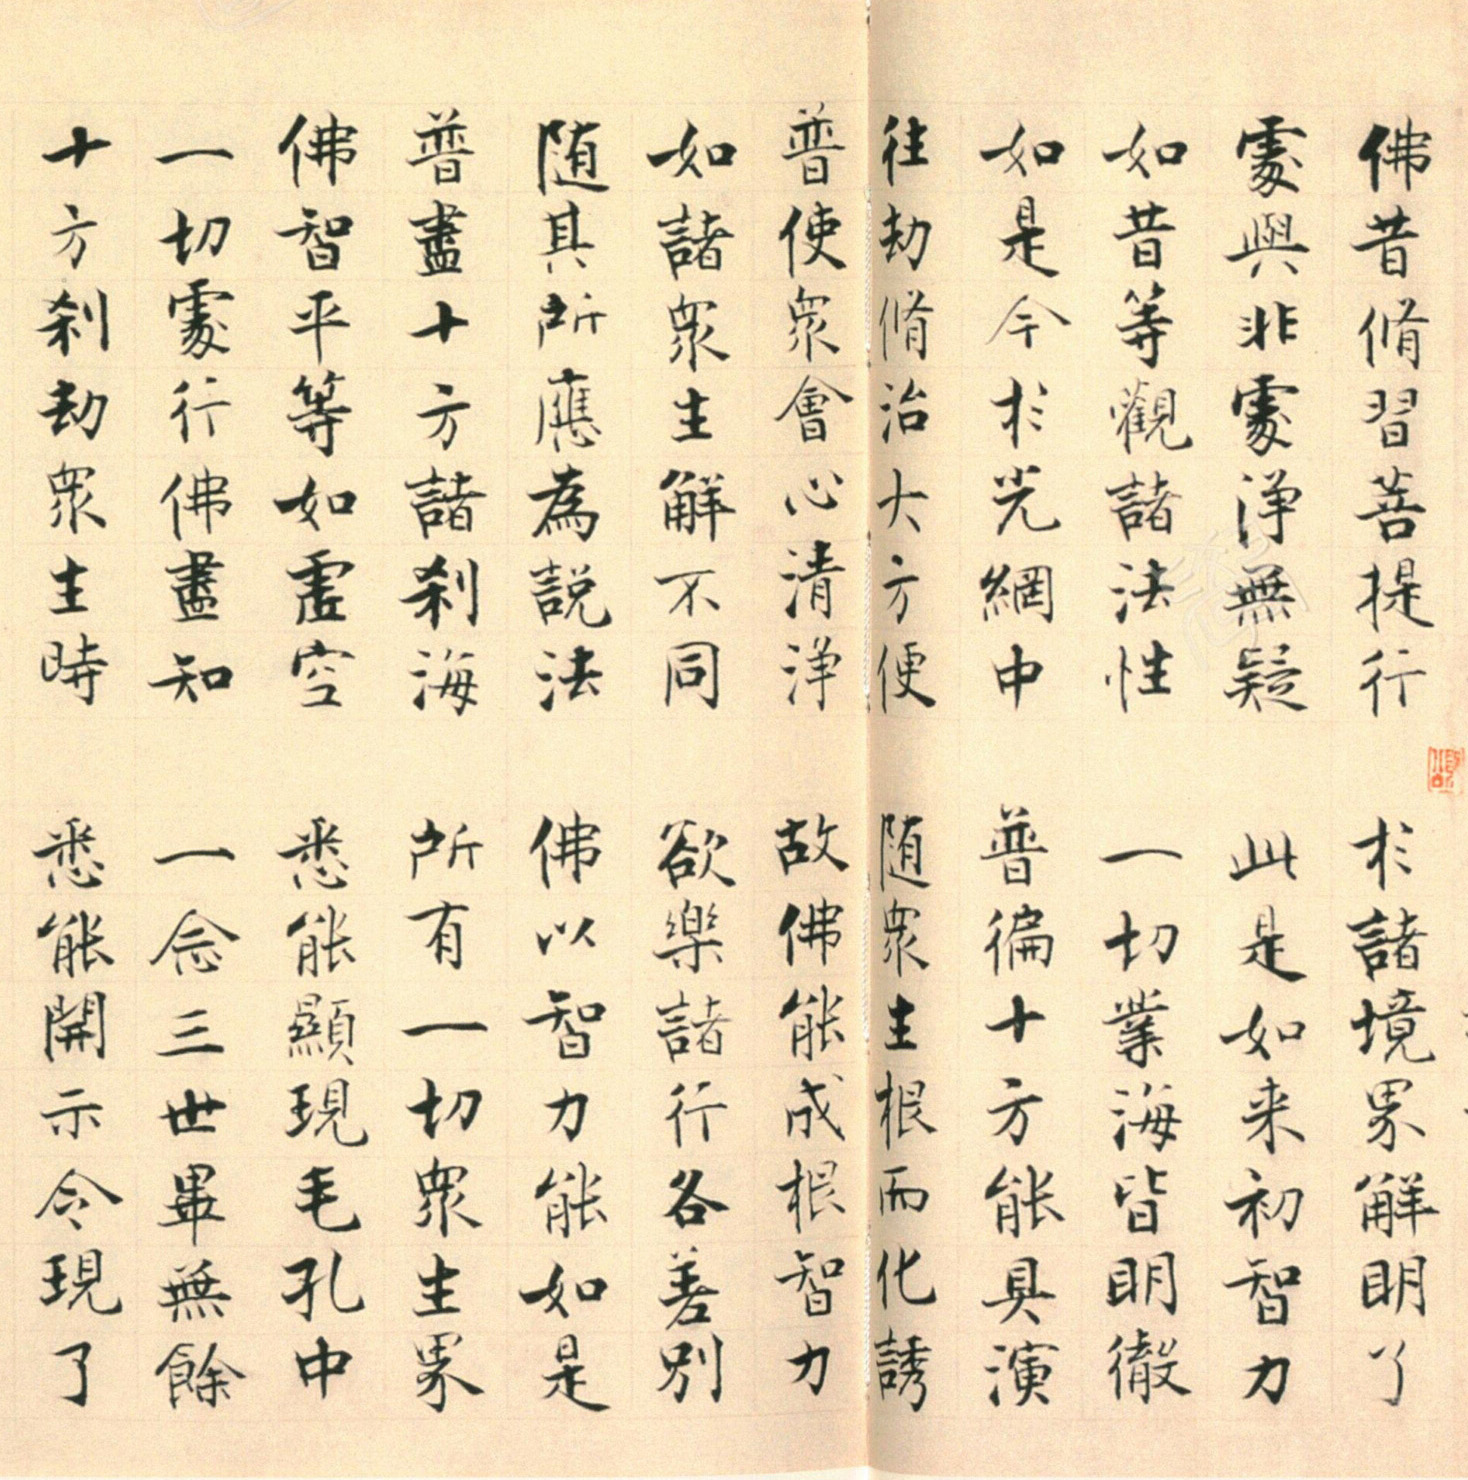 佛昔脩習菩提行 於諸境界解明了
處與非處淨無疑 此是如来初智力
如昔等觀諸法性 一切業海皆明徹
如是今於光網中 普徧十方能具演
往劫脩治大方便 随眾生根而化誘
普使眾會心清淨 故佛能成根智力
如諸眾生解不同 欲樂諸行各差別
随其所應為説法 佛以智力能如是
普盡十方諸剎海 所有一切眾生界
佛智平等如虛空 悉能顯現毛孔中
一切處行佛盡知 一念三世畢無餘
十方剎劫眾生時 悉能開示令現了